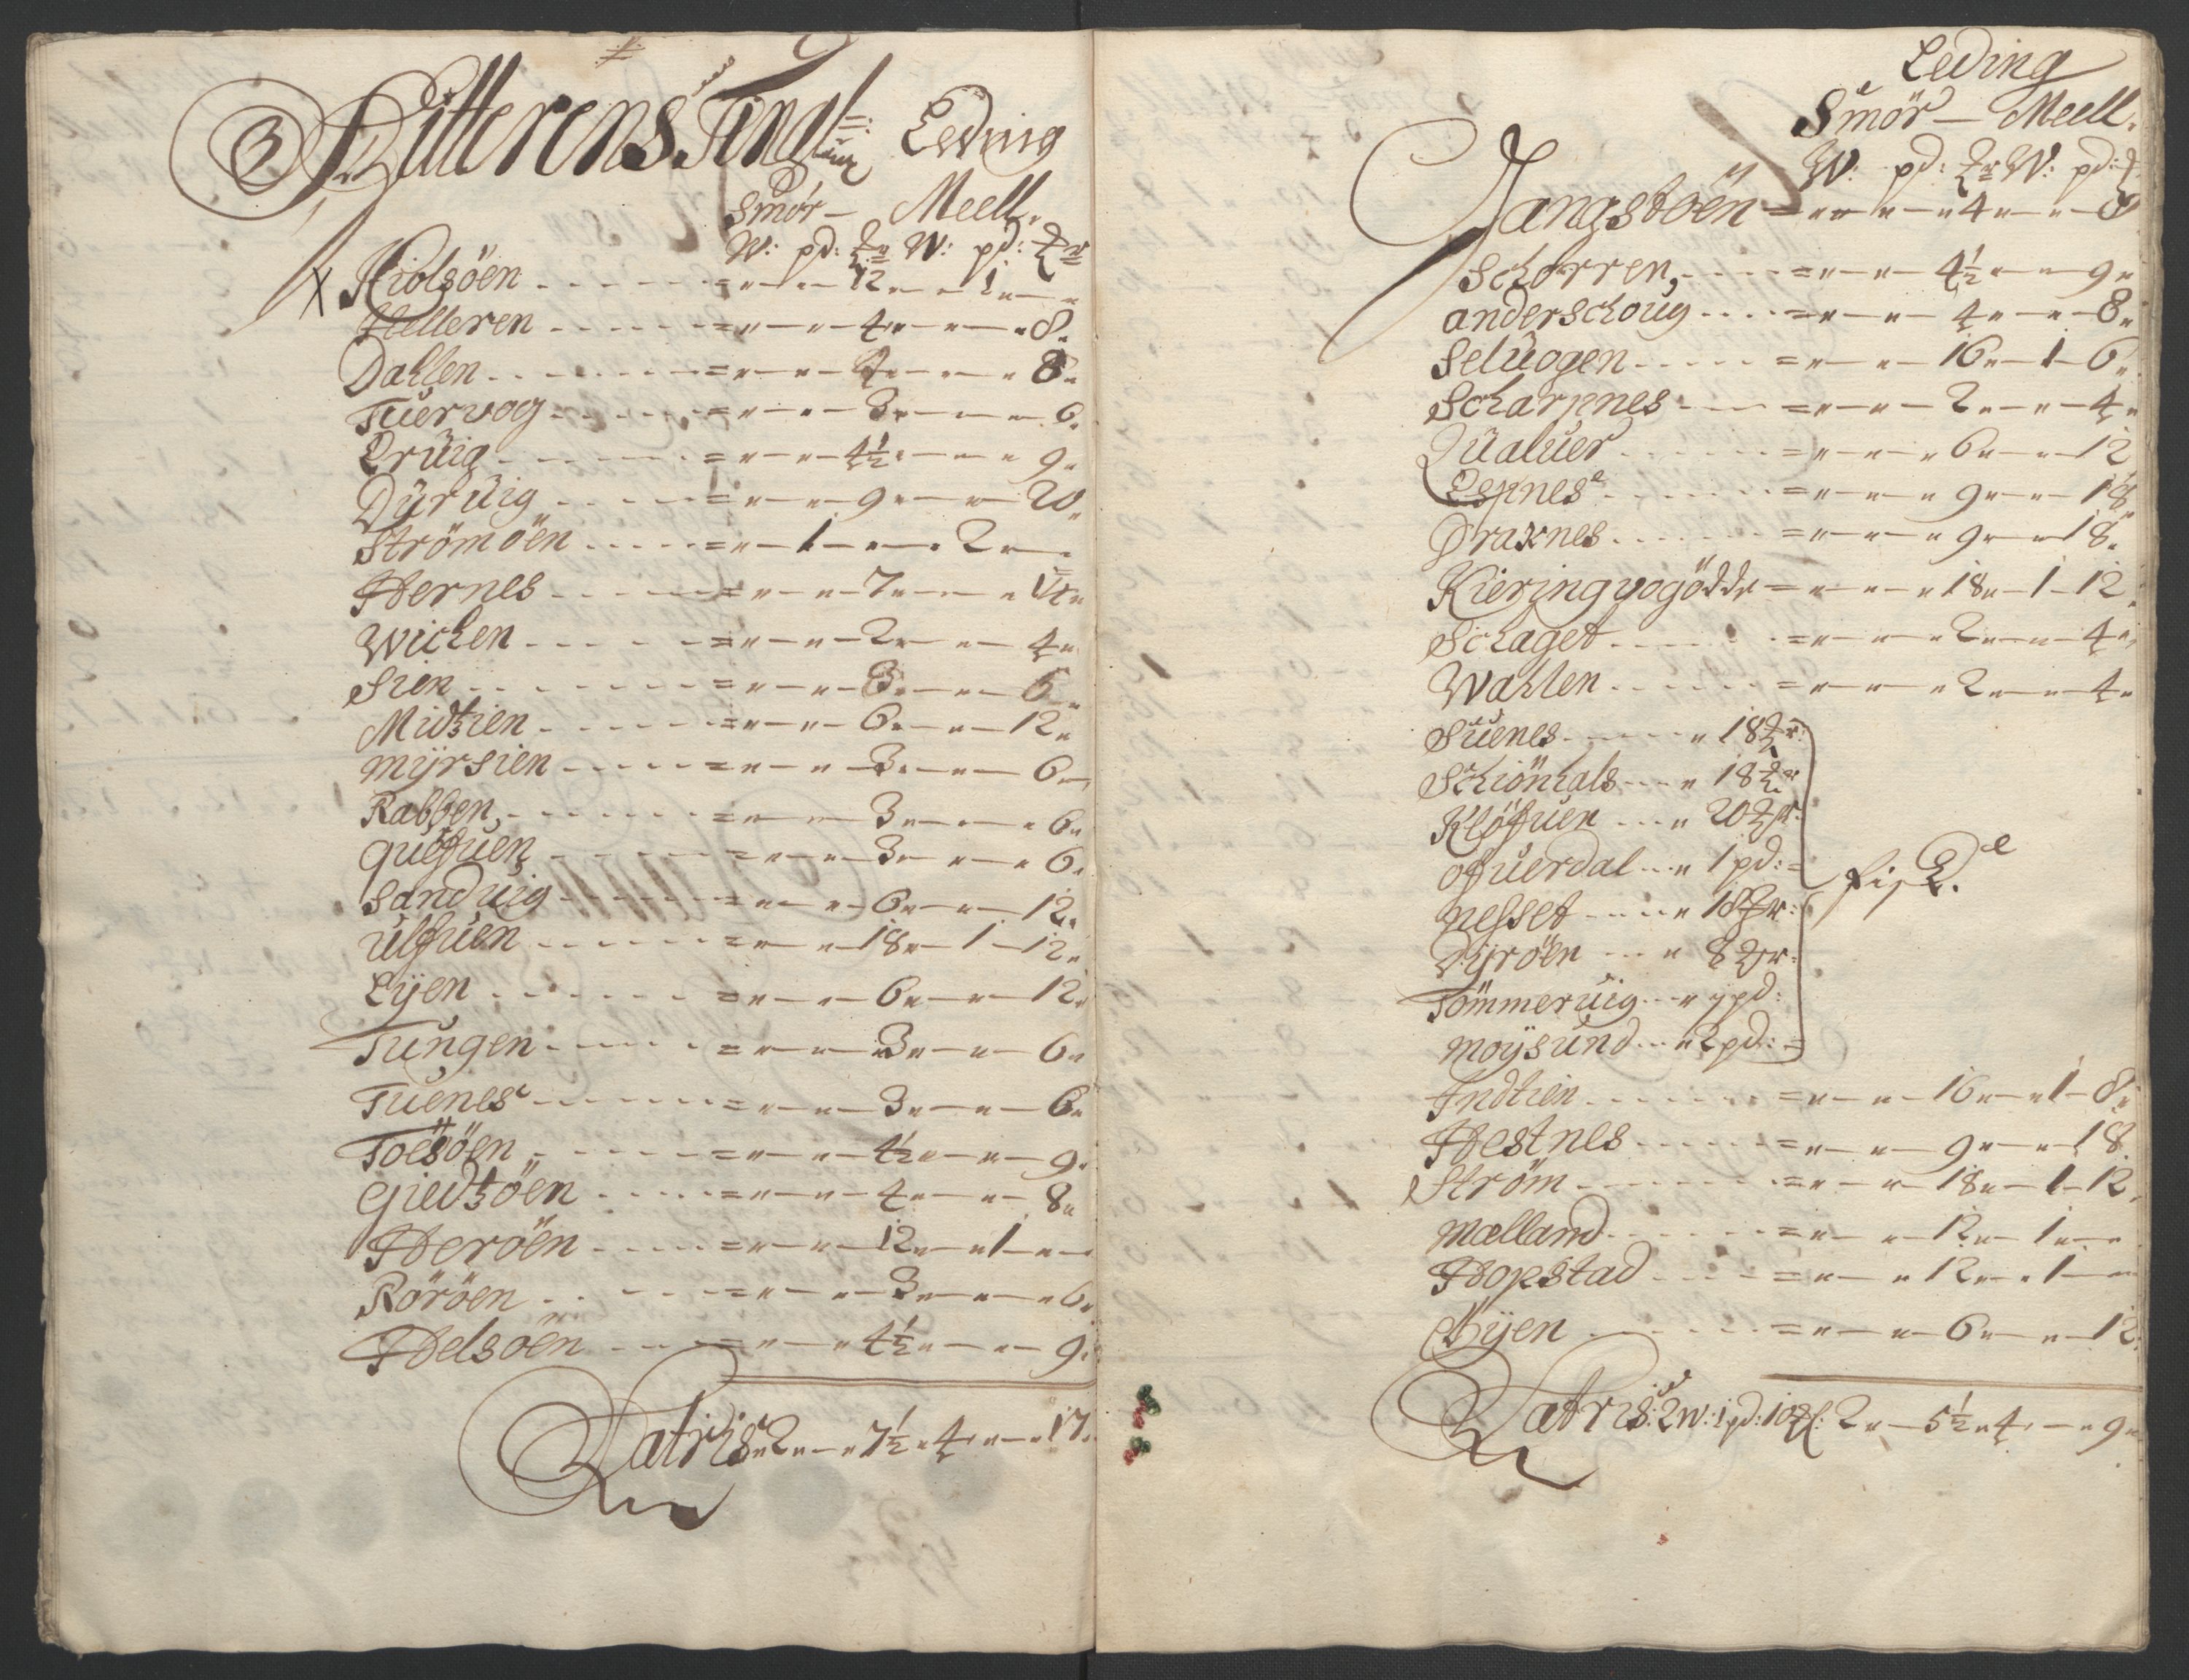 3 Hitterens Ting Leding
Smör — Meell.
W: pd: ℔r W: pd: ℔r
Kiolsöen - - - - = „ — „ — 12 „ — „ 1 „ — „
Helleren - - - - = „ — „ — 4 „ — „ — 8 „
Dahlen - - - - = „ — „ — 4 „ — „ — 8 „
Tuervog - - - - = „ — „ — 3 „ — „ — 6 „
Ørüig - - - - = „ — „ — 4½ „ — „ — 9 „
Dyrüig - - - - = „ — „ — 9 „ — „ — 20 „
Strömöen - - - - = „ — 1 — „ — „ 2 „ — „
Hernes - - - - = „ — „ — 7 „ — „ — 14 „
Wichen - - - - = „ — „ — 2 „ — „ — 4 „
Sien - - - - = „ — „ — 3 „ — „ — 6 „
Midtzien - - - - = „ — „ — 6 „ — „ — 12 „
Myrsien - - - - = „ — „ — 3 „ — „ — 6 „
Rabben - - - - = „ — „ — 3 „ — „ — 6 „
Quefuen - - - - = „ — „ — 3 „ — „ — 6 „
Sanduig - - - - = „ — „ — 6 „ — „ — 12 „
Ulfuen - - - - = „ — „ — 18 „ — 1 — 12 „
Eyen - - - - = „ — „ — 6 „ — „ — 12 „
Tungen - - - - = „ — „ — 3 „ — „ — 6 „
Tuenes - - - - = „ — „ — 3 „ — „ — 6 „
Toesöen - - - - = „ — „ — 4½ „ — „ — 9 „
Giedtzöen - - - - = „ — „ — 4 „ — „ — 8 „
Heröen - - - - = „ — „ — 12 „ — „ 1 „ — „
Röröen - - - - = „ — „ — 3 „ — „ — 6 „
Helsöen - - - - = „ — „ — 4½ „ — „ — 9 „
Latris „ 2 „ — „ 7½ „ 4 „ — „ 17 „
Leding
Smör — Meell.
W: pd: ℔r W: pd: ℔
Jangstöen = „ — „ — 4 „ — „ — 8
Schorren - - - - = „ — „ — 4½ „ — „ 9 „
Anderschoug - - - - = „ — „ — 4 „ — „ — 8 „
Seluogen - - - - = „ — „ — 16 „ — 1 — 6 „
Scharpnes - - - - = „ — „ — 2 „ — „ — 4 „
Qualuer - - - - = „ — „ — 6 „ — „ — 12
Espnes - - - - = „ — „ — 9 „ — „ — 18 „
Draxnes - - - - = „ — „ — 9 „ — „ 18 „
Kieringvogödde = „ — „ — 18 „ — 1 — 12 „
Schaget - - - - = „ — „ — 2 „ — „ — 4 „
Wahlen - - - - = „ — „ — 2 „ — „ — 4 „
Suenes - - - - „ 18 ℔r:
Schiönhals - - - „ 18 ℔r
Klöfuen - - - „ 20 ℔r:
Ofuerdal - - „ 1 pd: =
fisk.
Nesset - - - „ 18 ℔r:
Dyröen - - - „ 8 ℔r:
Tömmeruig - - „ 1 pd:
Moysund - - „ 2 pd: =
Indtien - - - - = „ — „ — 16 „ — „ 1 — 8 „
Hestnes - - - - = „ — „ — 9 „ — „ 18
Ström - - - - = „ — „ — 18 „ — 1 — 12 „
Mælland - - - - = „ — „ 12 „ — 1 „ — „
Hopstad - - - - = „ — „ 12 „ — „ 1 — „
Byen - - - - = „ — „ — 6 „ — „ — 12
Latris: 2 W: 1 pd: 10 ℔: 2 „ — 5½ „ 4 „ — „ 9 „